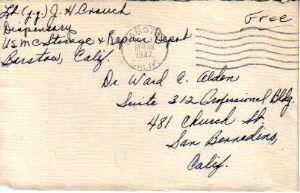 Lt (jg) J. H. Crouch
Dispensary
US MC Storage & Repair Depot
Barstow, Calif.
Free
1947
CALIF.
Dr. Ward C. Alden
Suite 312 Professional Bldg.
481 Church St.
San Bernadino,
Calif.